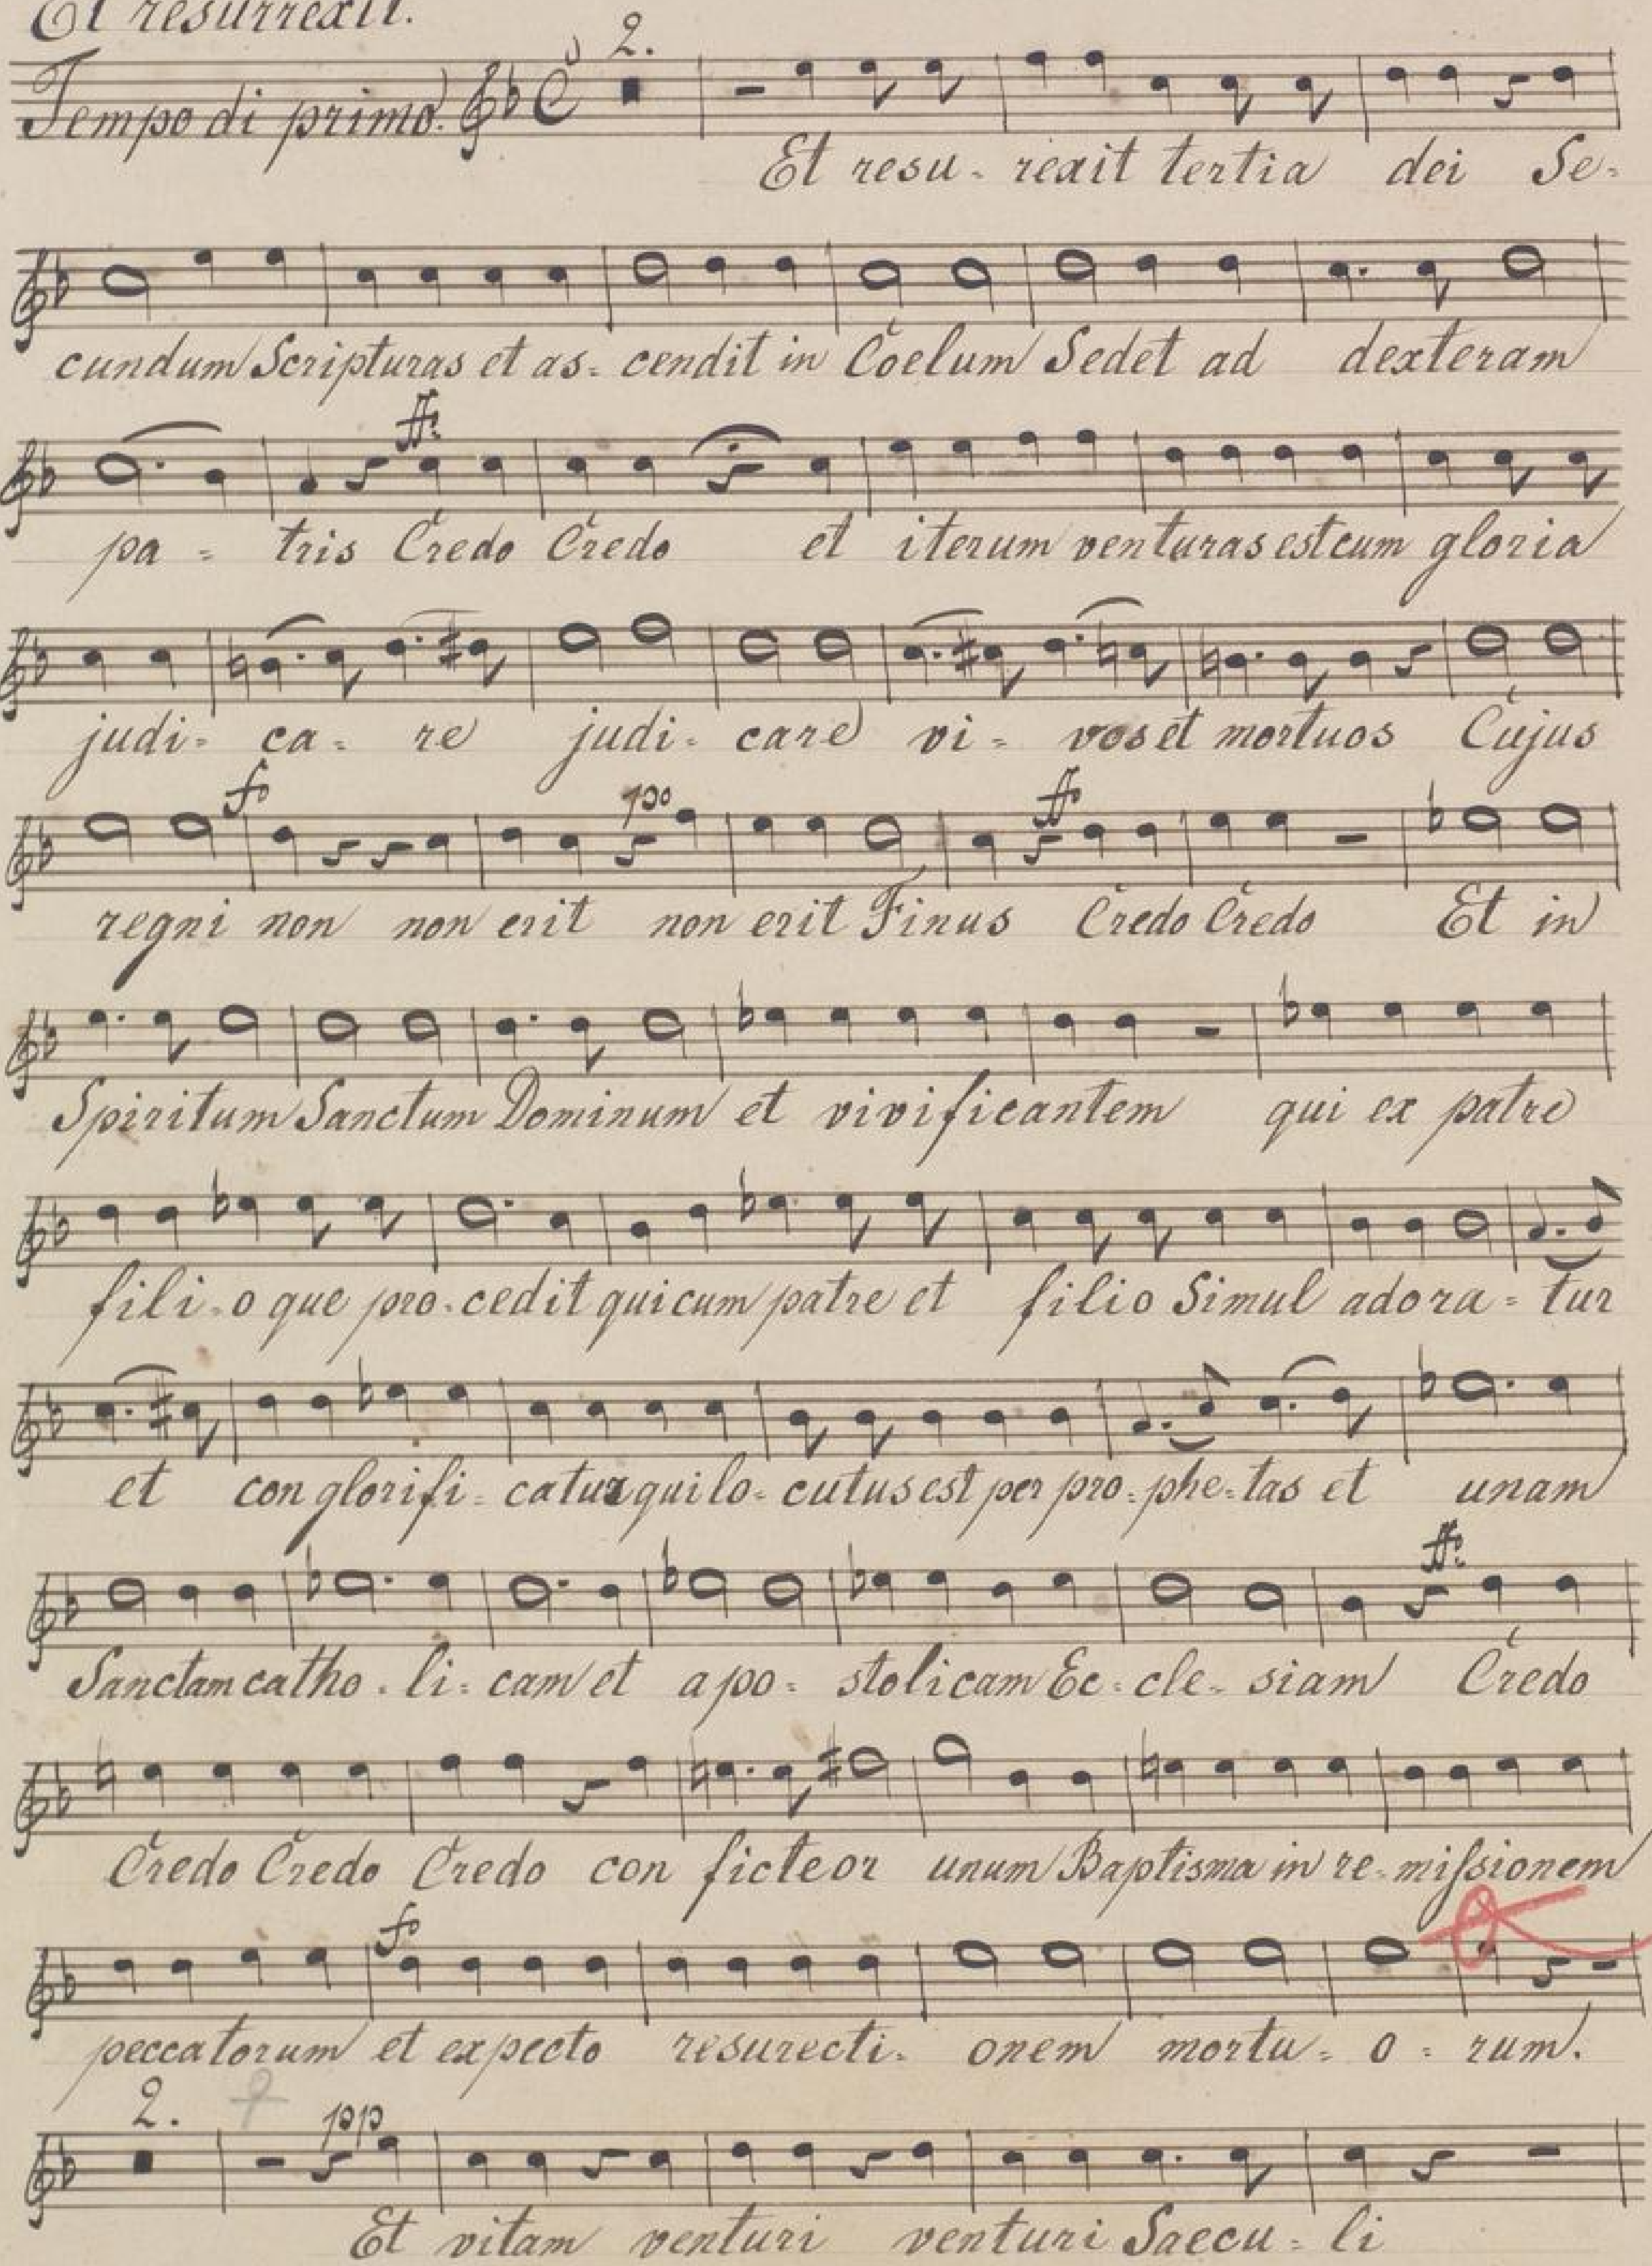 Et resurrexit.
2.
Tempo di primo.
Et resu - rexit tertia dei Se -
cundum Scripturas et as - cendit in Coelum Sedet ad dexteram
ff.
pa - tris Credo Credo et iterum venturas est cum gloria
judi - ca - re judi - care vi - vos et mortuos Cujus
fo po ff
regni non non erit non erit Finus Credo Credo Et in
Spiritum Sanctum Dominum et vivificantem qui ex patre
fili - o que pro - cedit qui cum patre et filio Simul adora - tur
et con glorifi - catur qui lo - cutus est per pro - phe - tas et unam
ff.
Sanctam catho - li - cam et apo - stolicam Ec - cle - siam Credo
Credo Credo Credo con ficteor unum Baptisma in re - missionem
fo
peccatorum et expecto resurecti - onem mortu - o - rum.
2. pp
Et vitam venturi venturi Saecu - li